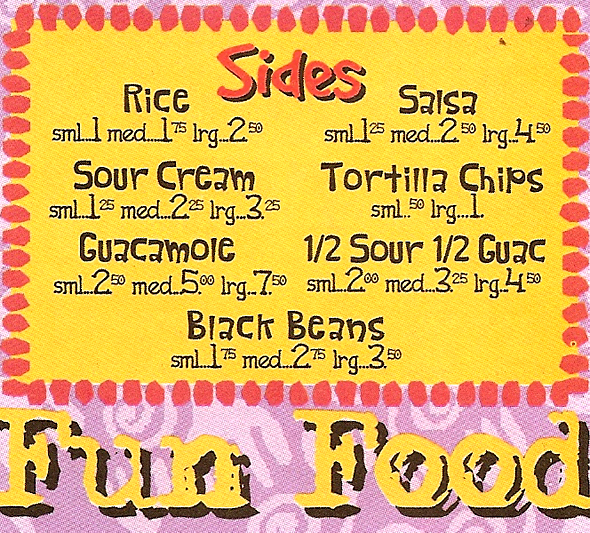 Sides
Rice
sml...1 med...1.75 lrg...2.50
Salsa
sml...1.25 med...2.50 lrg...4.50
Sour Cream
sml...1.25 med...2.25 lrg...3.25
Tortilla Chips
sml...50 lrg...1.
Guacamole
sml...2.50 med...5.00 lrg...7.50
1/2 Sour 1/2 Guac
sml...2.00 med...3.25 lrg...4.50
Black Beans
sml...1.75 med...2.75 lrg...3.50
Fun Food